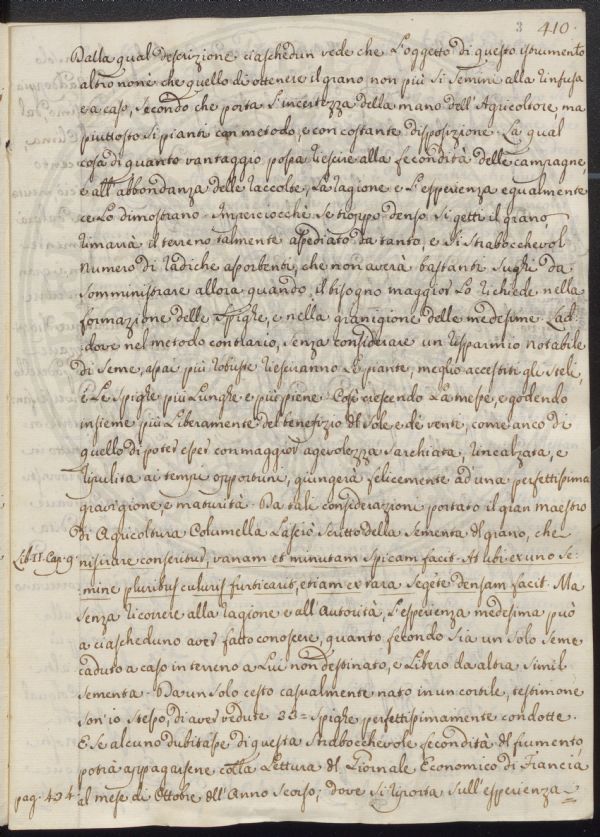 3 410.
Dalla qual descrizione ciaschedun vede che l'oggetto di questo istrumento
altro non è che quello di ottenere il grano non più si semini alla rinfusa
e a caso, secondo che porta l'incertezza della mano dell'Agricoltore, ma
piuttosto si pianti con metodo, e con costante disposizione. La qual
cosa di quanto vantaggio possa riescire alla fecondità delle campagne,
e all'abbondanza delle raccolte, la ragione e l'esperienza egualmente
ce lo dimostrano. Imperciocchè se troppo denso si getti il grano,
rimarrà il terreno talmente assediato da tanto, e sì strabocchevol
numero di radiche assorbenti, che non averà bastanti sughi da
somministrare allora quando il bisogno maggior lo richiede nella
formazione delle spighe, e nella granigione delle medesime. Lad=
:dove nel metodo contrario, senza considerare un risparmio notabile
di seme, assai più robuste riesciranno le piante, meglio accestiti gli steli,
e le spighe più lunghe e più piene. Così crescendo la messe, e godendo
insieme più liberamente del benefizio del sole e de' venti, come anco di
quello di poter esser con maggior agevolezza sarchiata, rincalzata, e
ripulita ai tempi opportuni, giungerà felicemente ad una perfettissima
granigione e maturità. Da tali considerazioni portato il gran maestro
di Agricoltura Columella lasciò scritto della sementa del grano, che
Lib. II. Cap. 9. nisi rare conseritur, vanam et minutam spicam facit. At ubi ex uno se=
mine pluribus culmis fruticavit, etiam ex rara segete densam facit. Ma
senza ricorrere alla ragione e all'autorità, l'esperienza medesima può
a ciascheduno aver fatto conoscere, quanto fecondo sia un solo seme
caduto a caso in terreno a lui non destinato, e libero da altra simil
sementa. Da un solo cesto casualmente nato in un cortile, testimone
son'io stesso, di aver vedute 33= spighe perfettissimamente condotte.
E se alcuno dubitasse di questa strabocchevole fecondità del frumento,
potrà appagarsene colla lettura del Giornale Economico di Francia
pag. 434. al mese di Ottobre dell'Anno scorso; dove si riporta sull'esperienza=